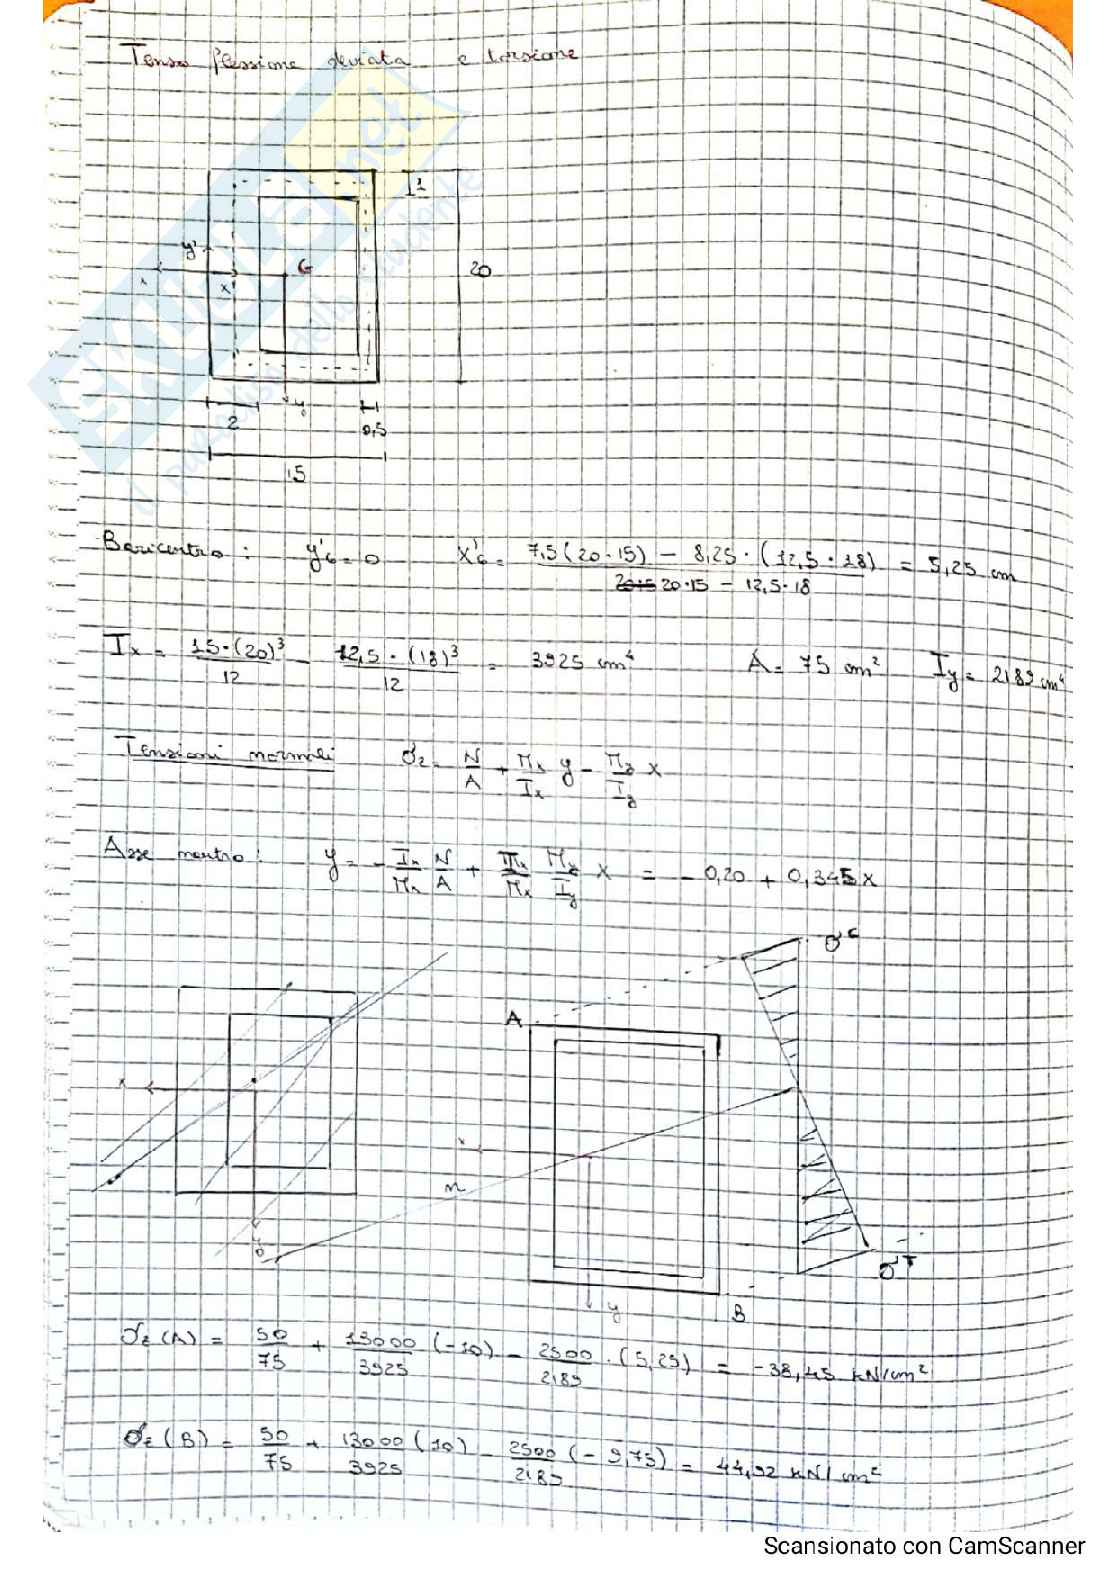 Tenso flessione deviata e torsione
1
y'
G
x
x'
20
y
2
0,5
15
Baricentro : y'G = 0 x'G = 7,5 (20·15) - 8,25 · (12,5 · 18) / 20·15 - 12,5·18 = 5,25 cm
Ix = 15·(20)³ / 12 - 12,5 · (18)³ / 12 = 3925 cm⁴ A = 75 cm² Iy = 2189 cm⁴
Tensioni normali σz = N/A + Mx/Ix y - My/Iy x
Asse neutro : y = - Ix/Mx N/A + Ix/Mx My/Iy x = - 0,20 + 0,345 x
σ c
A
x
x
n
y
σ T
y
B
σz (A) = 50/75 + 13000/3925 (-10) - 2500/2189 · (5,25) = -38,45 kN/cm²
σz (B) = 50/75 + 13000 (10)/3925 - 2500/2189 (- 9,75) = 44,92 kN/cm²
Scansionato con CamScanner